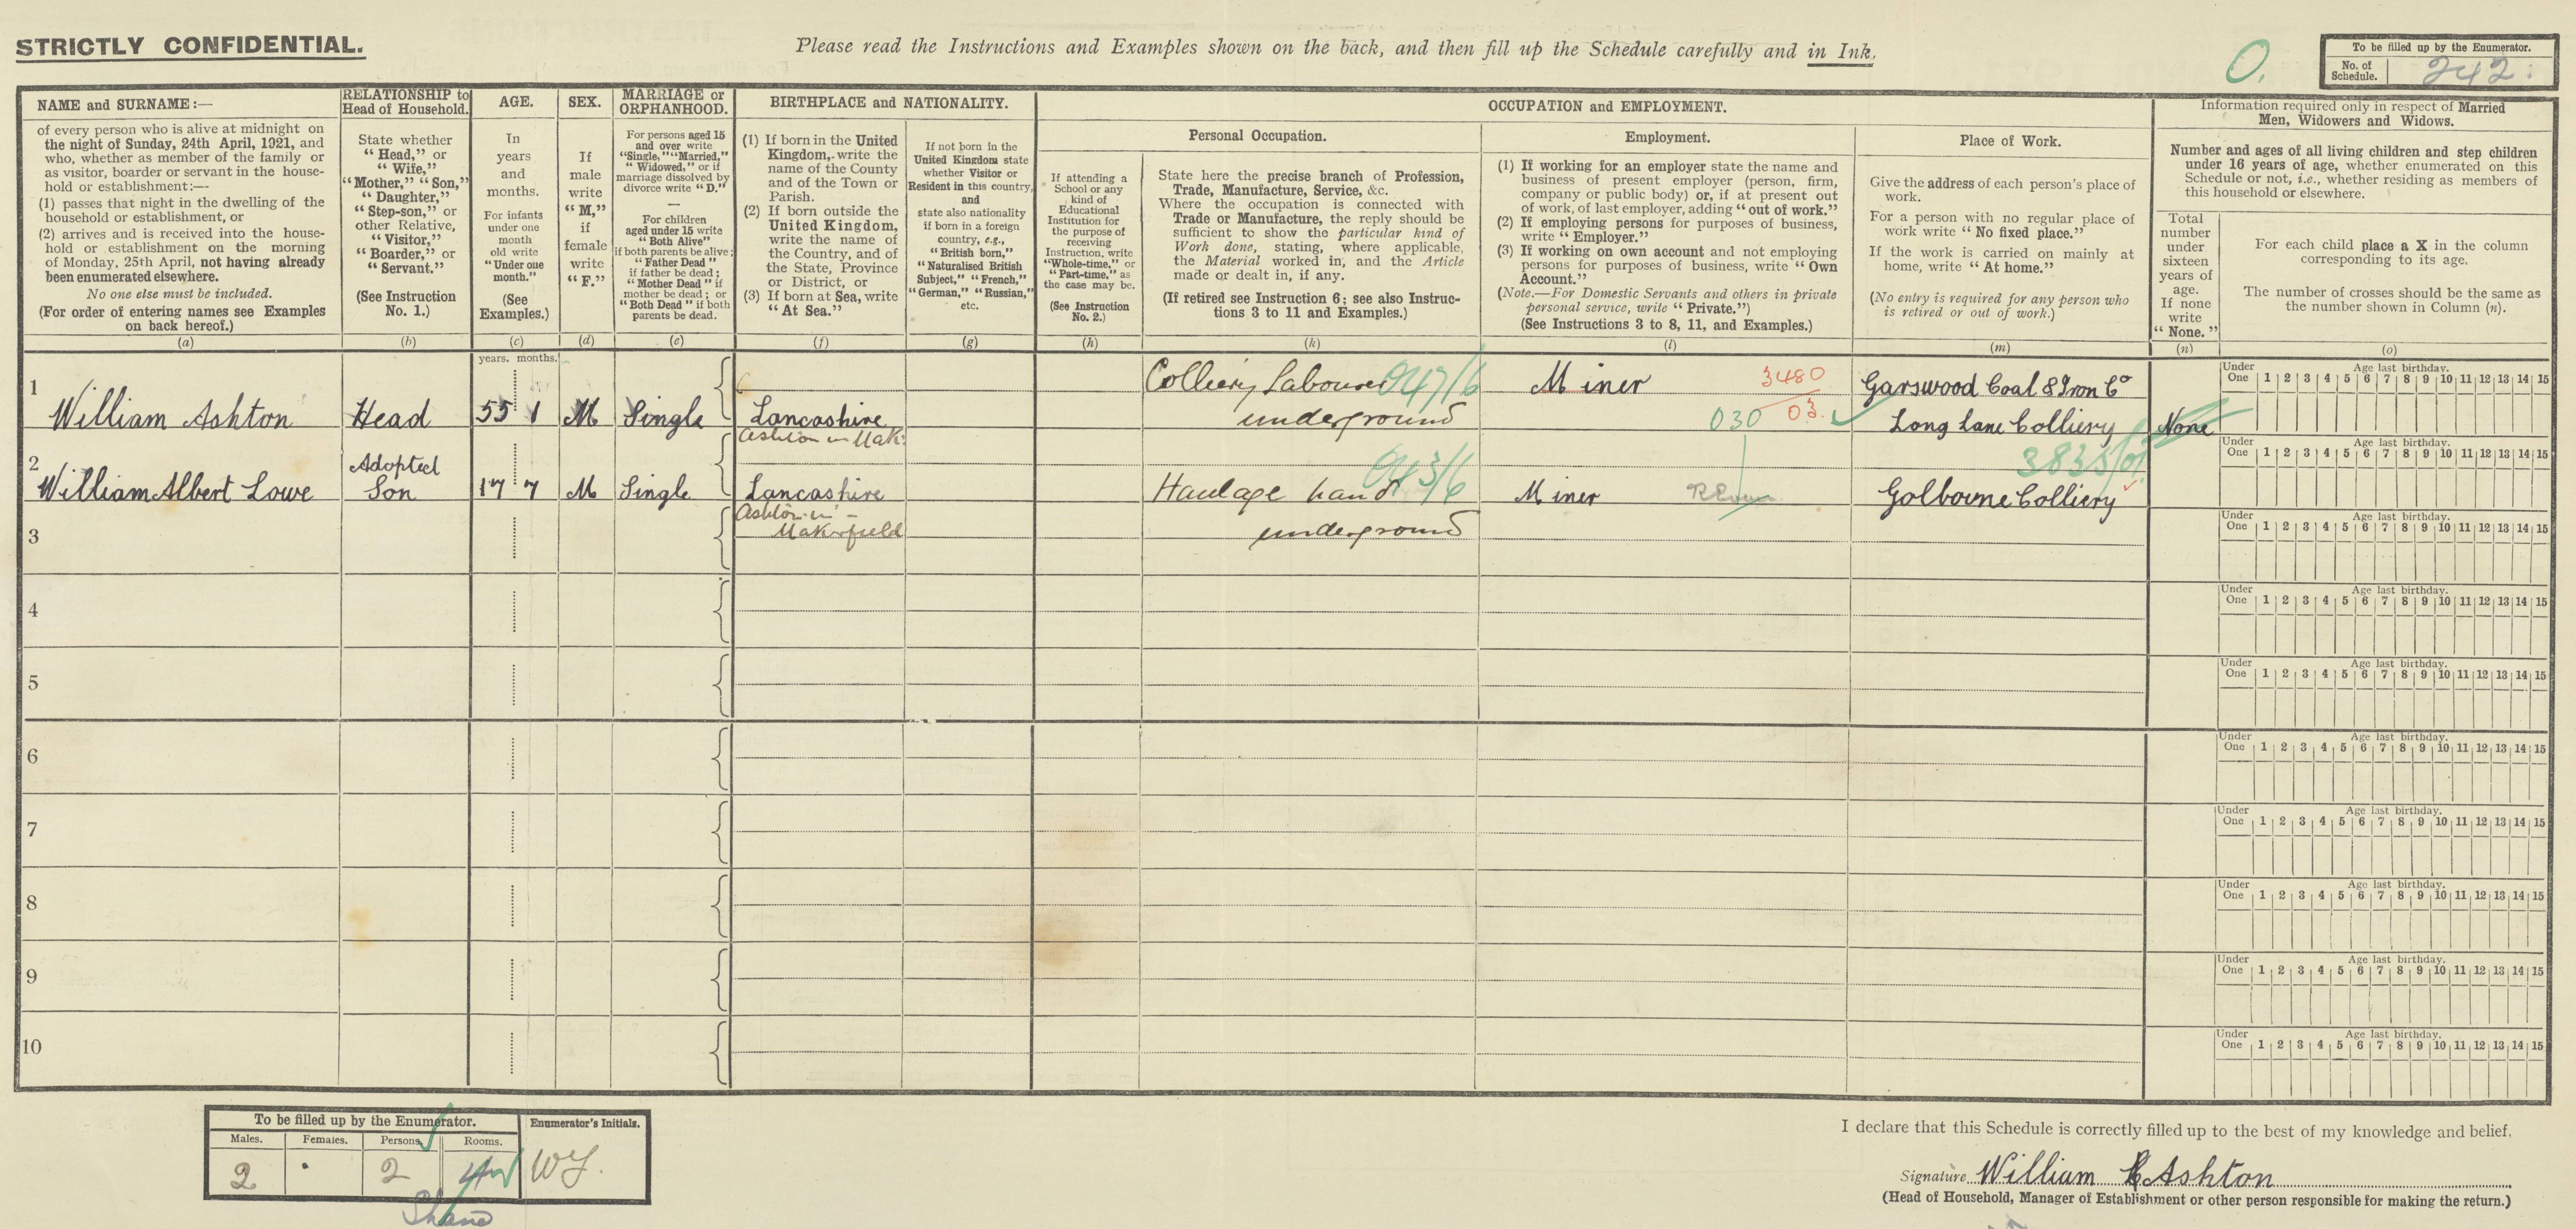 STRICTLY CONFIDENTIAL.
Please read the Instructions and Examples shown on the back, and then fill up the Schedule carefully and in Ink.
O.
To be filled up by the Enumerator.
No. of
Schedule.
242
NAME and SURNAME:—
of every person who is alive at midnight on
the night of Sunday, 24th April, 1921, and
who, whether as member of the family or
as visitor, boarder or servant in the house-
hold or establishment:—
(1) passes that night in the dwelling of the
household or establishment, or
(2) arrives and is received into the house-
hold or establishment on the morning
of Monday, 25th April, not having already
been enumerated elsewhere.
No one else must be included.
(For order of entering names see Examples
on back hereof.)
(a)
RELATIONSHIP to
Head of Household.
State whether
"Head," or
"Wife,"
"Mother," "Son,"
"Daughter,"
"Step-son," or
other Relative,
"Visitor,"
"Boarder," or
"Servant."
(See Instruction
No. 1.)
(b)
AGE.
In
years
and
months.
For infants
under one
month
old write
"Under one
month."
(See
Examples.)
(c)
SEX.
If
male
write
"M,"
if
female
write
"F."
(d)
MARRIAGE or
ORPHANHOOD.
For persons aged 15
and over write
"Single," "Married,"
"Widowed," or if
marriage dissolved by
divorce write "D."
—
For children
aged under 15 write
"Both Alive"
if both parents be alive;
"Father Dead"
if father be dead;
"Mother Dead" if
mother be dead; or
"Both Dead" if both
parents be dead.
(e)
BIRTHPLACE and NATIONALITY.
(1) If born in the United
Kingdom, write the
name of the County
and of the Town or
Parish.
(2) If born outside the
United Kingdom,
write the name of
the Country, and of
the State, Province
or District, or
(3) If born at Sea, write
"At Sea."
(f)
If not born in the
United Kingdom state
whether Visitor or
Resident in this country,
and
state also nationality
if born in a foreign
country, e.g.,
"British born,"
"Naturalised British
Subject," "French,"
"German," "Russian,"
etc.
(g)
OCCUPATION and EMPLOYMENT.
If attending a
School or any
kind of
Educational
Institution for
the purpose of
receiving
Instruction, write
"Whole-time," or
"Part-time," as
the case may be.
(See Instruction
No. 2.)
(h)
Personal Occupation.
State here the precise branch of Profession,
Trade, Manufacture, Service, &c.
Where the occupation is connected with
Trade or Manufacture, the reply should be
sufficient to show the particular kind of
Work done, stating, where applicable,
the Material worked in, and the Article
made or dealt in, if any.
(If retired see Instruction 6; see also Instruc-
tions 3 to 11 and Examples.)
(k)
Employment.
(1) If working for an employer state the name and
business of present employer (person, firm,
company or public body) or, if at present out
of work, of last employer, adding "out of work."
(2) If employing persons for purposes of business,
write "Employer."
(3) If working on own account and not employing
persons for purposes of business, write "Own
Account."
(Note.—For Domestic Servants and others in private
personal service, write "Private.")
(See Instructions 3 to 8, 11, and Examples.)
(l)
Place of Work.
Give the address of each person's place of
work.
For a person with no regular place of
work write "No fixed place."
If the work is carried on mainly at
home, write "At home."
(No entry is required for any person who
is retired or out of work.)
(m)
Information required only in respect of Married
Men, Widowers and Widows.
Number and ages of all living children and step children
under 16 years of age, whether enumerated on this
Schedule or not, i.e., whether residing as members of
this household or elsewhere.
Total
number
under
sixteen
years of
age.
If none
write
"None."
(n)
For each child place a X in the column
corresponding to its age.
The number of crosses should be the same as
the number shown in Column (n).
(o)
years. months.
1
William Ashton
Head
55 1
M
Single
Lancashire
Ashton in Mak.
Colliery Labourer
underground
047/6
Miner
3480
03.
030
Garswood Coal & Iron Co
Long Lane Colliery
None
Under Age last birthday.
One 1 2 3 4 5 6 7 8 9 10 11 12 13 14 15
2
William Albert Lowe
Adopted
Son
17 7
M
Single
Lancashire
Ashton-in-
Makerfield
Haulage hand
underground
043/6
Miner
Golborne Colliery
Under Age last birthday.
One 1 2 3 4 5 6 7 8 9 10 11 12 13 14 15
3
Under Age last birthday.
One 1 2 3 4 5 6 7 8 9 10 11 12 13 14 15
4
Under Age last birthday.
One 1 2 3 4 5 6 7 8 9 10 11 12 13 14 15
5
Under Age last birthday.
One 1 2 3 4 5 6 7 8 9 10 11 12 13 14 15
6
Under Age last birthday.
One 1 2 3 4 5 6 7 8 9 10 11 12 13 14 15
7
Under Age last birthday.
One 1 2 3 4 5 6 7 8 9 10 11 12 13 14 15
8
Under Age last birthday.
One 1 2 3 4 5 6 7 8 9 10 11 12 13 14 15
9
Under Age last birthday.
One 1 2 3 4 5 6 7 8 9 10 11 12 13 14 15
10
Under Age last birthday.
One 1 2 3 4 5 6 7 8 9 10 11 12 13 14 15
To be filled up by the Enumerator.
Enumerator's Initials.
Males. Females. Persons. Rooms.
2 · 2 4
I declare that this Schedule is correctly filled up to the best of my knowledge and belief.
Signature William Ashton
(Head of Household, Manager of Establishment or other person responsible for making the return.)